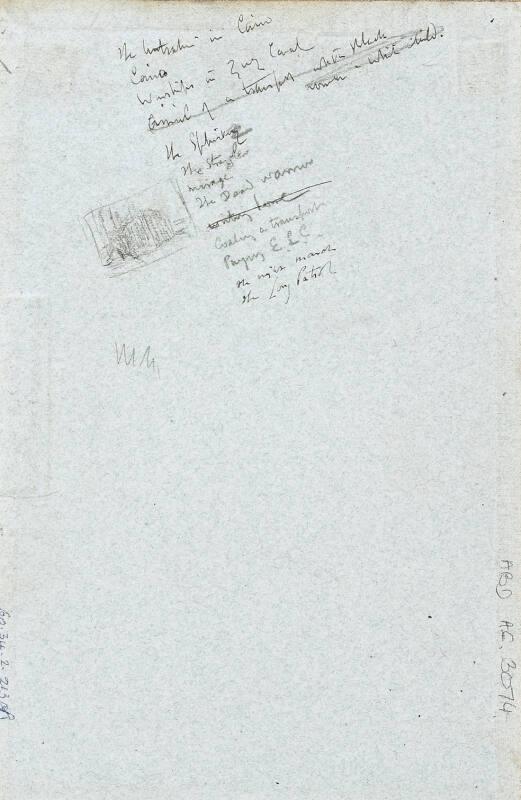 The Australian in Cairo
Cairo
Warships in Suez Canal
Arrival of a transport white black
woman - white child.
The Sphinx
The Straggler
mirage
The Dead warrior
Coaling a transport
Paying E.E.C.
The night march
The Long Patrol
ARD AG. 30574.